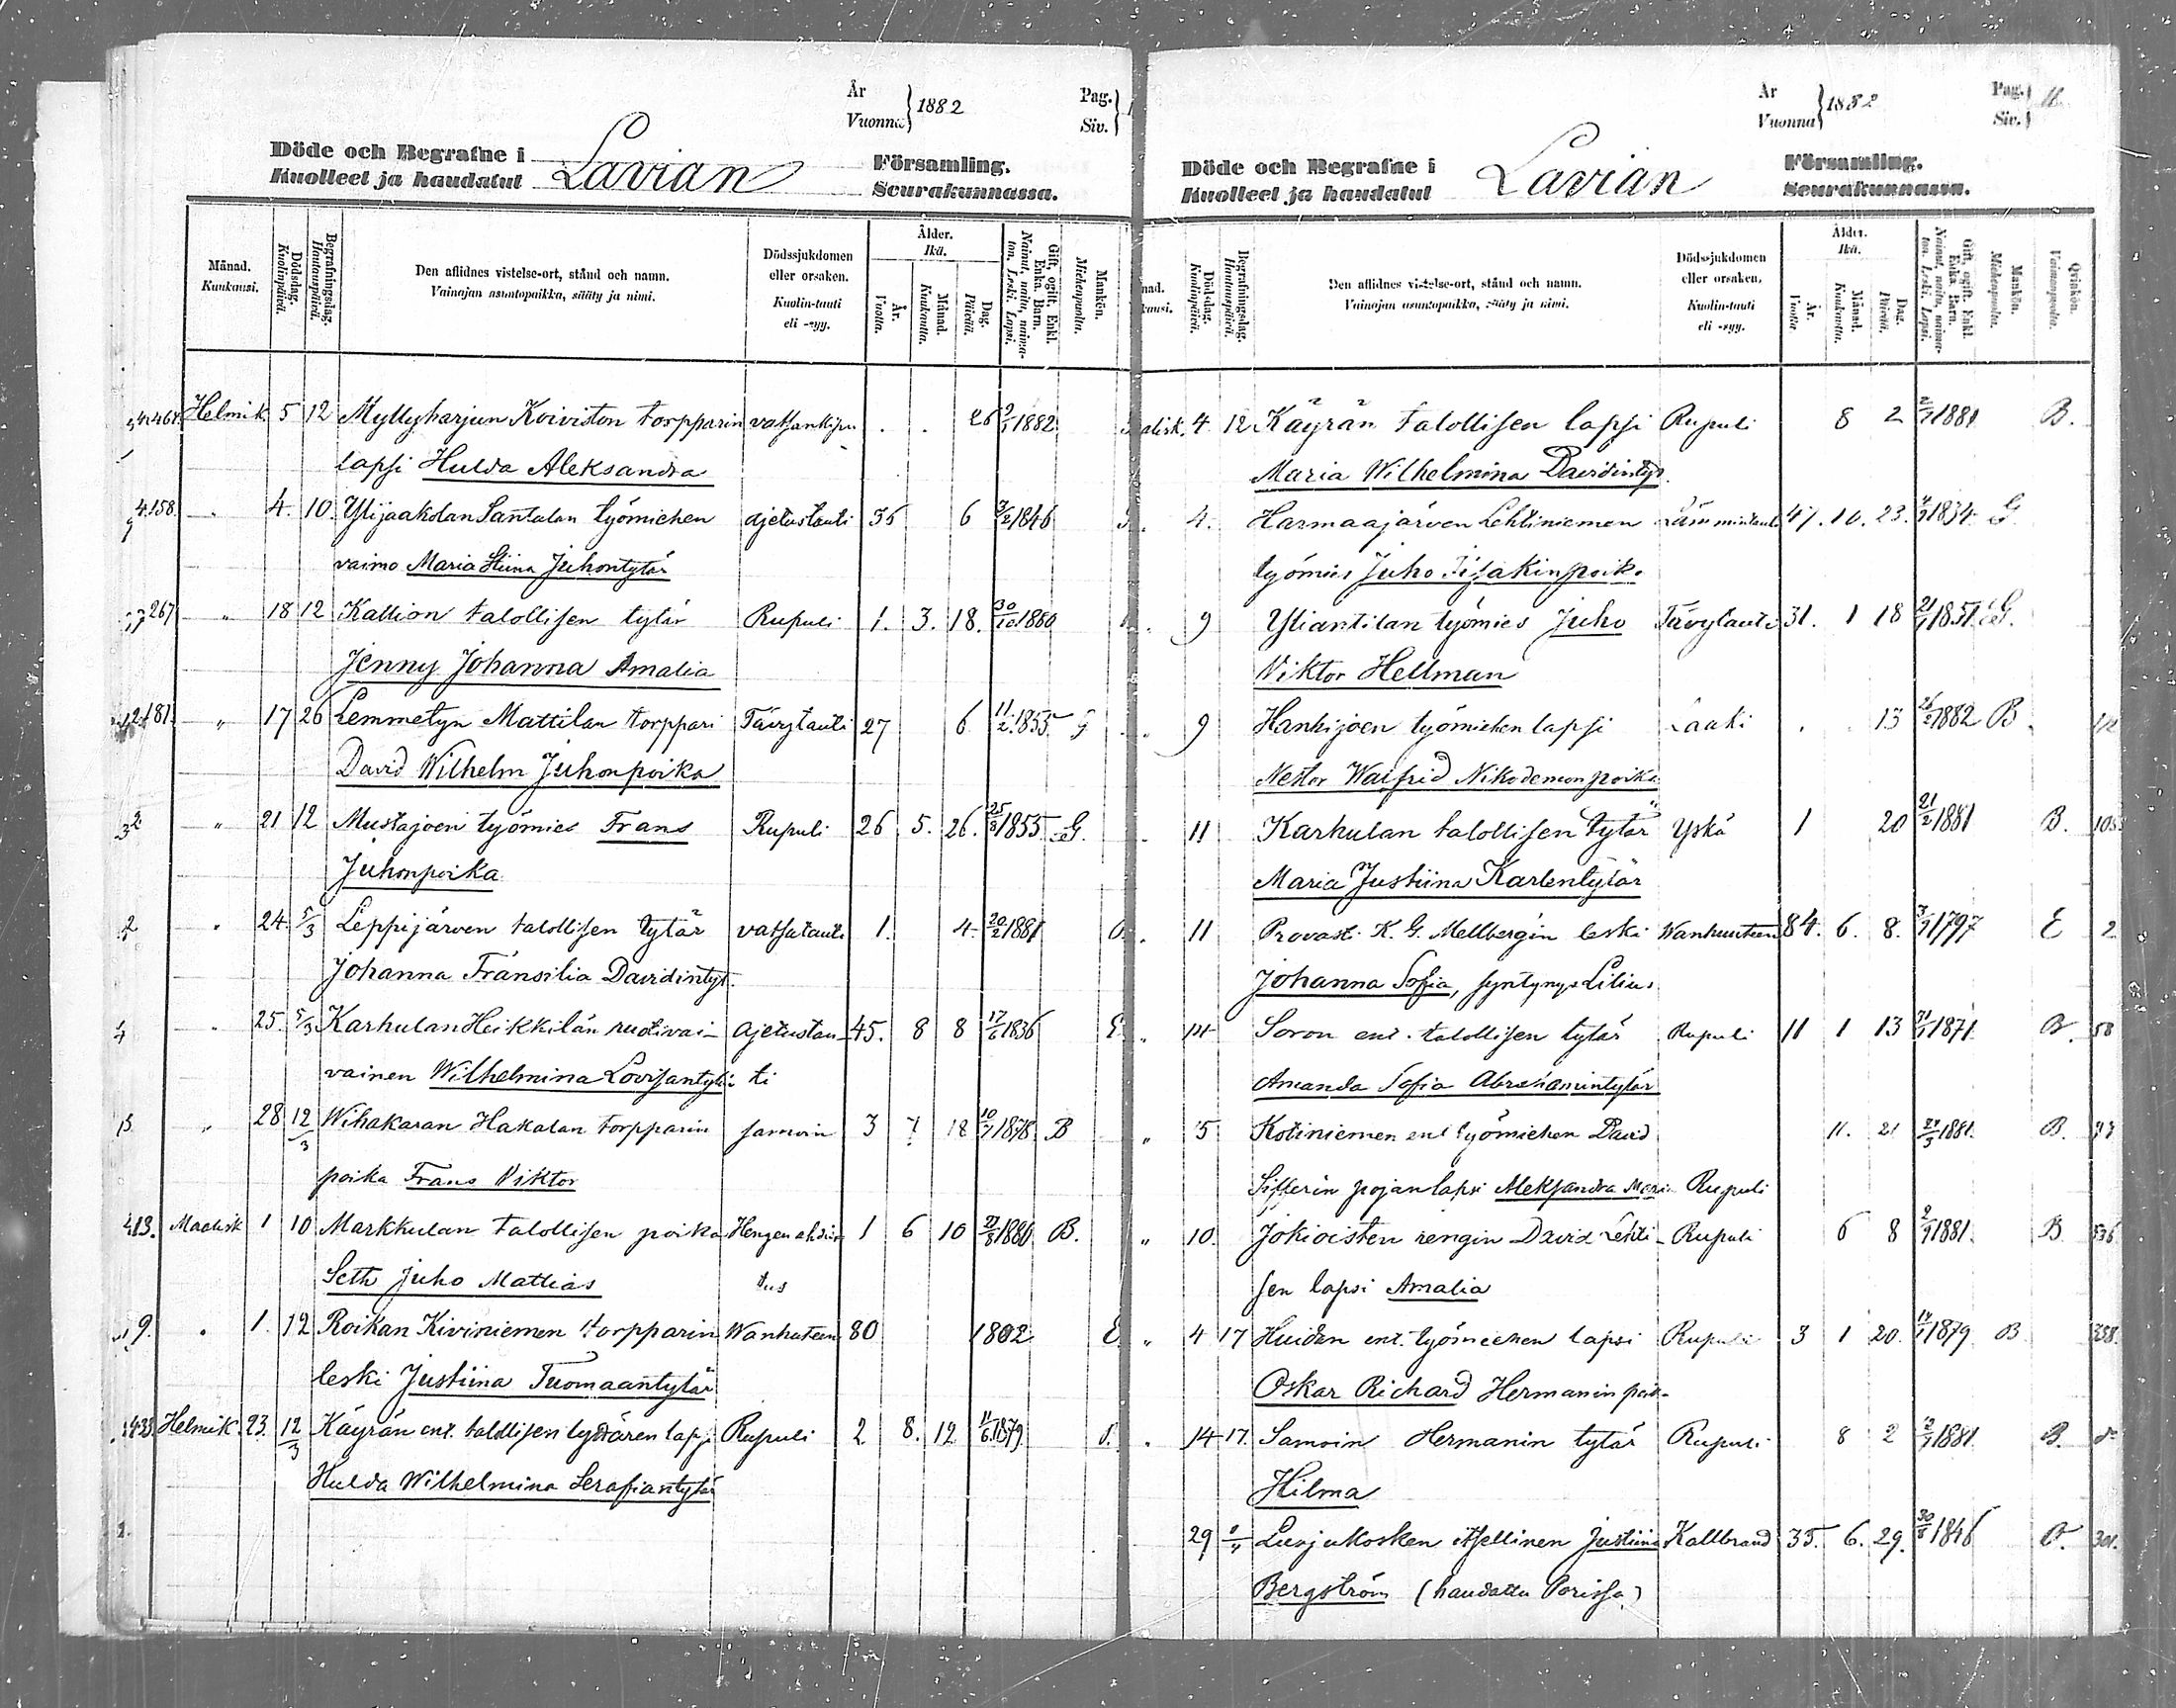 År
Vuonna } 1882
Pag.
Siv. }
Döde och Begrafne i Lavian Församling.
Kuolleet ja haudatut Seurakunnassa.
Månad. Kuukausi.
Dödsdag. Kuolinpäivä.
Begrafningsdag. Hautauspäivä.
Den aflidnes vistelse-ort, stånd och namn.
Vainajan asuntopaikka, sääty ja nimi.
Dödssjukdomen eller orsaken.
Kuolin-tauti eli -syy.
Ålder. Ikä.
År. Vuotta.
Månad. Kuukautta.
Dag. Päivää.
Gift, ogift, Enkl. Enka. Barn.
Nainut, naitu, naimaton. Leski. Lapsi.
Mankön. Miehenpuolta.
Helmik 5 12 Myllyharjun Koiviston torpparin 26 9/1 1882
lapsi Hulda Aleksandra
4.158. 4. 10 Ylijaakolan Santalan työmiehen ajetustauti 36 6 1846
vaimo Maria Stiina Juhontytär
267 " 18 12 Kallion talollisen tytär Rupuli 1. 3. 18. 30/10 1880
Jenny Johanna Amalia
" 17 26 Lemmetyn Mattilan torppari Tävytauti 27 6 11/2 1855 G
David Wilhelm Juhonpoika
" 21 12 Mustajoen työmies Frans Rupuli 26 5. 26. 25/8 1855 G.
Juhonpoika
" 24. 5/3 Leppijärven talollisen tytär vatsatauti 1. 4. 20/2 1881
Johanna Fransilia Davidintyt.
" 25. 5/3 Karhulan Heikkilän ruotivai- Ajetustau- 45. 8 8 17/6 1836 E
vainen Wilhelmina Lovisantytär ti
" 28 12/3 Wihakaran Hakalan torpparin samoin 3 7 18 10/7 1878 B
poika Frans Viktor
413. Maalisk 1 10 Markkulan talollisen poika Hengenahdis- 1 6 10 21/8 1880 B.
Seth Juho Mattias tus
9. " 1. 12 Roikan Kiviniemen torpparin Wanhuteen 80 1802 E
leski Justiina Tuomaantytär
Helmik. 23. 12/3 Käyrän ent. talollisen tyttären lapsi Rupuli 2 8. 12 11/6 1879
Hulda Wilhelmina Serafiantytär
År
Vuonna } 1882
Pag.
Siv. } 11
Döde och Begrafne i Lavian Församling.
Kuolleet ja haudatut Seurakunnassa.
Dödsdag. Kuolinpäivä.
Begrafningsdag. Hautauspäivä.
Den aflidnes vistelse-ort, stånd och namn.
Vainajan asuntopaikka, sääty ja nimi.
Dödssjukdomen eller orsaken.
Kuolin-tauti eli -syy.
Ålder. Ikä.
År. Vuotta
Månad. Kuukautta.
Dag. Päivää.
Gift, ogift. Enkl. Enka. Barn.
Nainut, naitu, naimaton. Leski. Lapsi.
Mankön. Miehenpuolta.
Qvinkön. Vaimonpuolta.
4. 12 Käyrän talollisen lapsi Rupuli 8 2 2/7 1881 B.
Maria Wilhelmina Davidintyt.
4. Harmaajärven Lehtiniemen 47. 10. 23. 1834 G
työmies Juho Iisakinpoik.
9 Yliantilan työmies Juho Tävytauti 31. 1 18 21/1 1851 G.
Viktor Hellman
9 Hankijoen työmiehen lapsi Laaki 13 26/2 1882 B
Nestor Waifrid Nikodemonpoika
11 Karhulan talollisen tytär Yskä 1 20 21/2 1881 B.
Maria Justiina Karlentytär
11 Provasti K. G. Mellbergin leski Wanhuuteen 84. 6. 8. 1797 E 2
Johanna Sofia, syntynyt Lilius
" 14 Soron ent. talollisen tytär Rupuli 11 1 13 31/1 1871 B. 58
Amanda Sofia Abrahamintytär
" 5 Kotiniemen ent työmiehen David 11. 21 1881. B.
Sifferin pojan lapsi Aleksandra Maria Rupuli
" 10. Jokioisten rengin David Lehti- Rupuli 6 8 2/9 1881. B 536
sen lapsi Amalia
" 4 17 Huidan ent. työmiehen lapsi Rupuli 3 1 20. 14/1 1879 B
Oskar Richard Hermanin poik-
" 14 17. Samoin Hermanin tytär Rupuli 8 2 12/7 1881 B.
Hilma
29 Luojukosken itsellinen Justiina Kallbrand 35. 6. 29. 30/8 1846 301.
Bergström (haudattu Porissa)